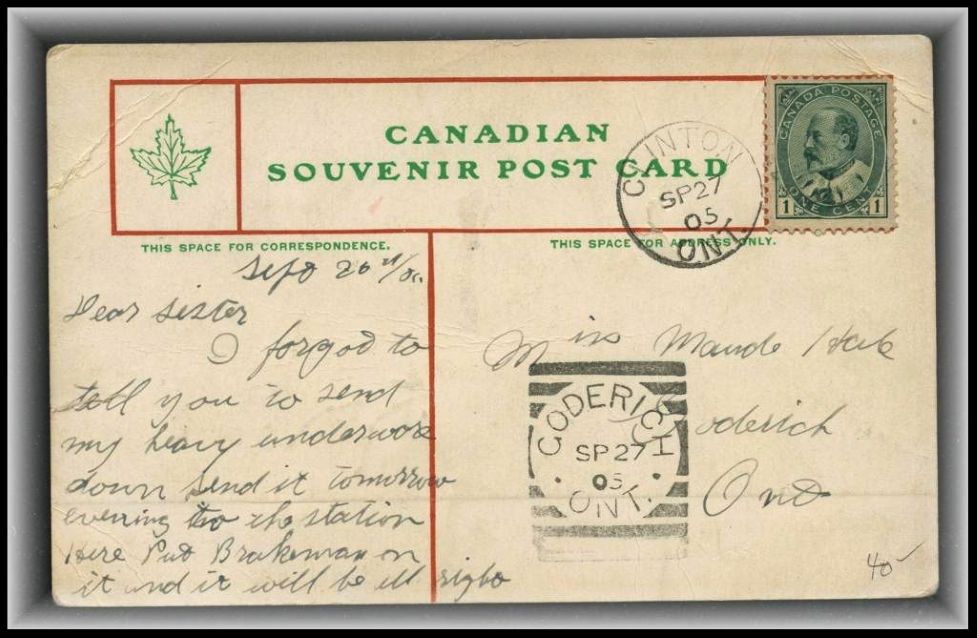 CANADIAN
SOUVENIR POST CARD
CANADA POSTAGE
1 ONE CENT 1
CLINTON
SP 27
05
ONT.
THIS SPACE FOR CORRESPONDENCE.
THIS SPACE FOR ADDRESS ONLY.
Sept 26
Dear Sister
I forgot to
tell you to send
my heavy underware
down send it tomorrow
evening to the station
Here Put Brakeman on
it and it will be all right
Miss Maude
Goderich
Ont
GODERICH
SP 27
05
ONT.
40-